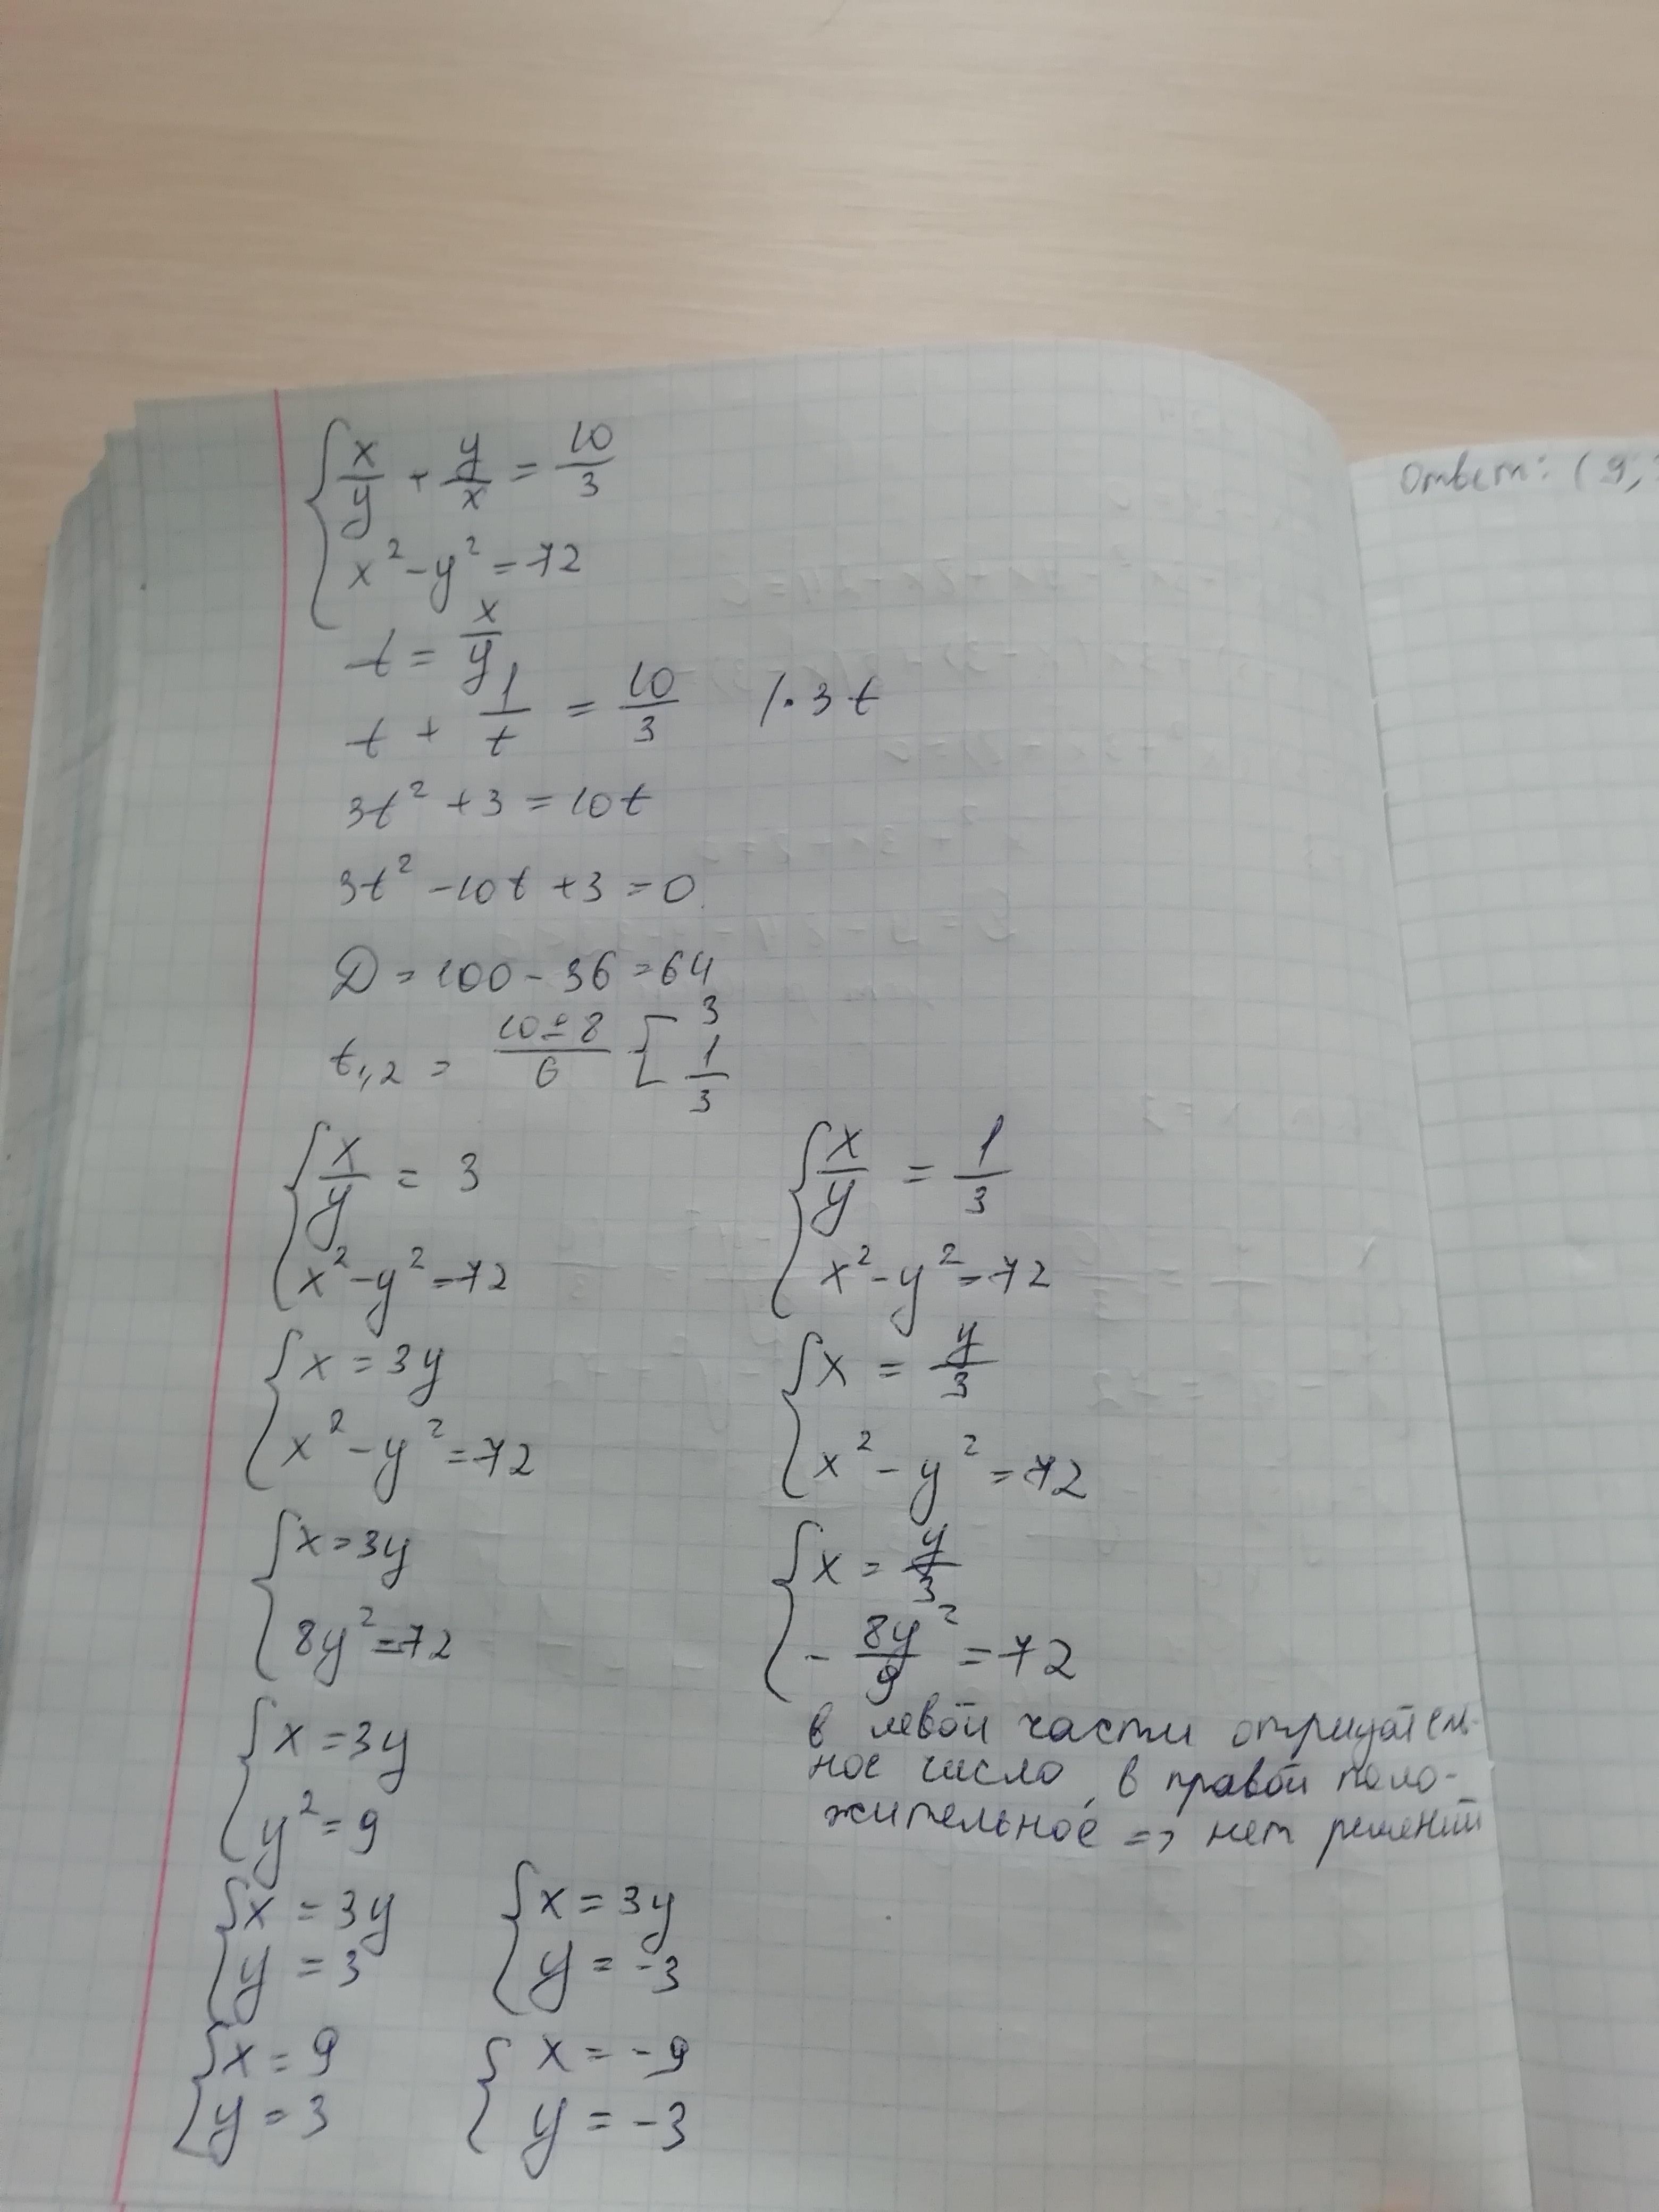 x/y + y/x = 10/3
x² - y² = 72
t = x/y
t + 1/t = 10/3 /· 3t
3t² + 3 = 10t
3t² - 10t + 3 = 0
D = 100 - 36 = 64
t₁,₂ = (10 ± 8)/6 [ 3 1/3
x/y = 3
x² - y² = 72
x = 3y
x² - y² = 72
8y² = 72
x = 3y
x = 3y
y² = 9
x = 3y
y = 3
x = 3y
y = -3
x = 9
y = 3
x = -9
y = -3
x/y = 1/3
x² - y² = 72
x = y/3
x² - y² = 72
x = y/3
- 8y²/9 = 72
в левой части отрицатель-
ное число, в правой поло-
жительное => нет решений
Ответ: (9;